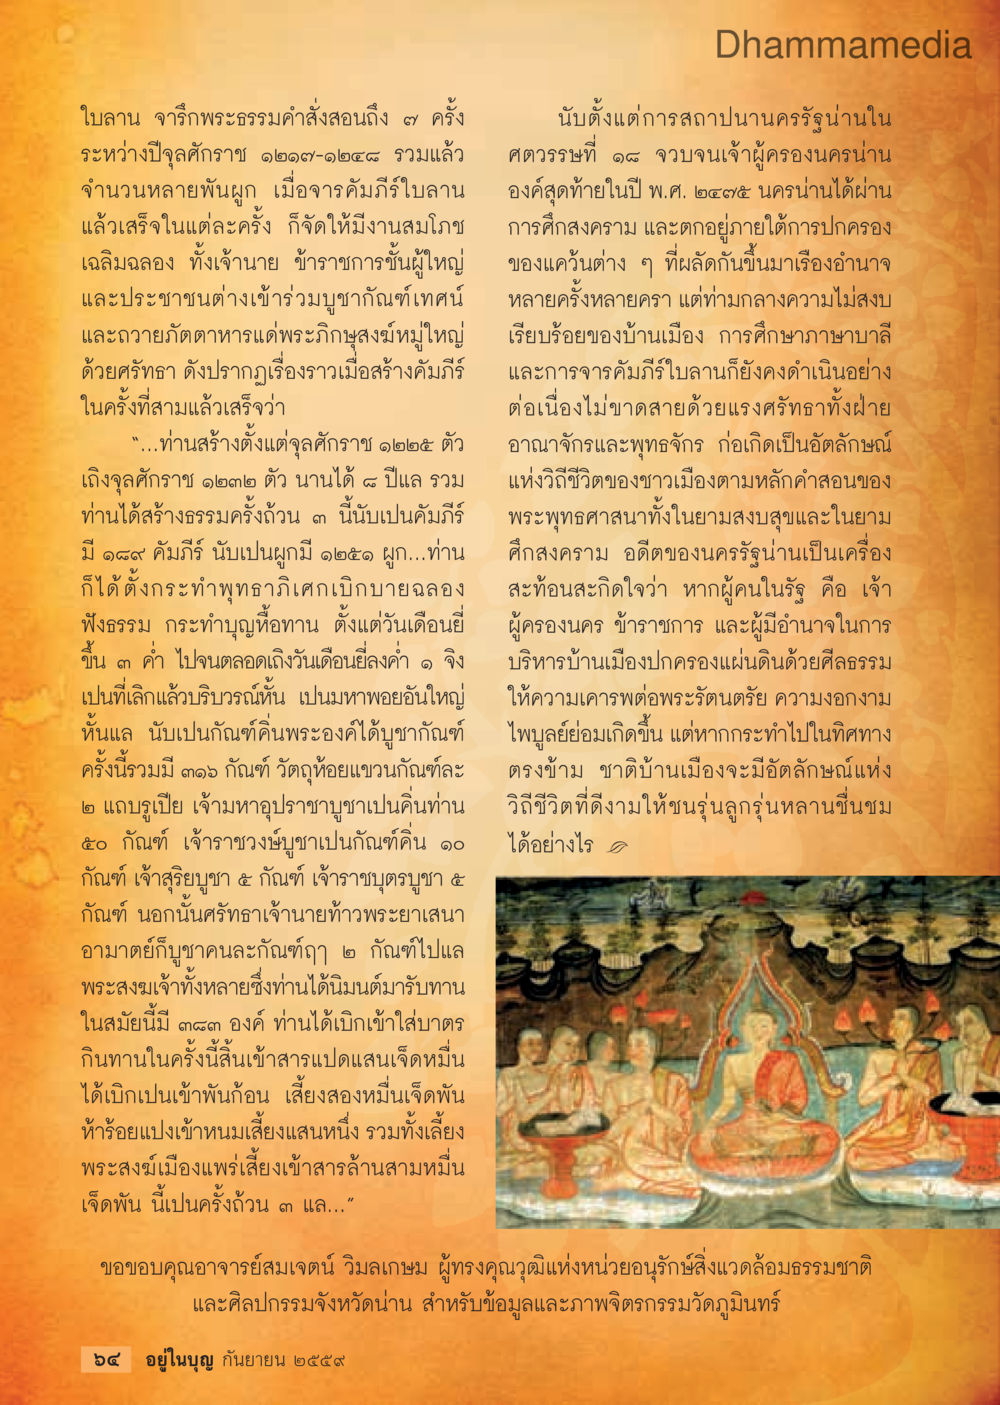 Dhammamedia
ใบลาน จารึกพระธรรมคำสั่งสอนถึง ๗ ครั้ง
ระหว่างปีจุลศักราช ๑๒๑๗-๑๒๔๘ รวมแล้ว
จำนวนหลายพันผูก เมื่อจารคัมภีร์ใบลาน
แล้วเสร็จในแต่ละครั้ง ก็จัดให้มีงานสมโภช
เฉลิมฉลอง ทั้งเจ้านาย ข้าราชการชั้นผู้ใหญ่
และประชาชนต่างเข้าร่วมบูชากัณฑ์เทศน์
และถวายภัตตาหารแด่พระภิกษุสงฆ์หมู่ใหญ่
ด้วยศรัทธา ดังปรากฏเรื่องราวเมื่อสร้างคัมภีร์
ในครั้งที่สามแล้วเสร็จว่า
“...ท่านสร้างตั้งแต่จุลศักราช ๑๒๒๕ ตัว
เถิงจุลศักราช ๑๒๓๒ ตัว นานได้ ๘ ปีแล รวม
ท่านได้สร้างธรรมครั้งถ้วน ๓ นี้นับเปนคัมภีร์
มี ๑๘๙ คัมภีร์ นับเปนผูกมี ๑๒๕๑ ผูก...ท่าน
ก็ได้ตั้งกระทำพุทธาภิเศกเบิกบายฉลอง
ฟังธรรม กระทำบุญหื้อทาน ตั้งแต่วันเดือนยี่
ขึ้น ๓ ค่ำ ไปจนตลอดเถิงวันเดือนยี่ลงค่ำ ๑ จิง
เปนที่เลิกแล้วบริบวรณ์หั้น เปนมหาพอยอันใหญ่
หั้นแล นับเปนกัณฑ์คิ่นพระองค์ได้บูชากัณฑ์
ครั้งนี้รวมมี ๓๑๖ กัณฑ์ วัตถุห้อยแขวนกัณฑ์ละ
๒ แถบรูเปีย เจ้ามหาอุปราชาบูชาเปนคิ่นท่าน
๕๐ กัณฑ์ เจ้าราชวงษ์บูชาเปนกัณฑ์คิ่น ๑๐
กัณฑ์ เจ้าสุริยบูชา ๕ กัณฑ์ เจ้าราชบุตรบูชา ๕
กัณฑ์ นอกนั้นศรัทธาเจ้านายท้าวพระยาเสนา
อามาตย์ก็บูชาคนละกัณฑ์ฤๅ ๒ กัณฑ์ไปแล
พระสงฆเจ้าทั้งหลายซึ่งท่านได้นิมนต์มารับทาน
ในสมัยนี้มี ๓๘๓ องค์ ท่านได้เบิกเข้าใส่บาตร
กินทานในครั้งนี้สิ้นเข้าสารแปดแสนเจ็ดหมื่น
ได้เบิกเปนเข้าพันก้อน เสี้ยงสองหมื่นเจ็ดพัน
ห้าร้อยแปงเข้าหนมเสี้ยงแสนหนึ่ง รวมทั้งเลี้ยง
พระสงฆ์เมืองแพร่เสี้ยงเข้าสารล้านสามหมื่น
เจ็ดพัน นี้เปนครั้งถ้วน ๓ แล...”
นับตั้งแต่การสถาปนานครรัฐน่านใน
ศตวรรษที่ ๑๘ จวบจนเจ้าผู้ครองนครน่าน
องค์สุดท้ายในปี พ.ศ. ๒๔๗๕ นครน่านได้ผ่าน
การศึกสงคราม และตกอยู่ภายใต้การปกครอง
ของแคว้นต่าง ๆ ที่ผลัดกันขึ้นมาเรืองอำนาจ
หลายครั้งหลายครา แต่ท่ามกลางความไม่สงบ
เรียบร้อยของบ้านเมือง การศึกษาภาษาบาลี
และการจารคัมภีร์ใบลานก็ยังคงดำเนินอย่าง
ต่อเนื่องไม่ขาดสายด้วยแรงศรัทธาทั้งฝ่าย
อาณาจักรและพุทธจักร ก่อเกิดเป็นอัตลักษณ์
แห่งวิถีชีวิตของชาวเมืองตามหลักคำสอนของ
พระพุทธศาสนาทั้งในยามสงบสุขและในยาม
ศึกสงคราม อดีตของนครรัฐน่านเป็นเครื่อง
สะท้อนสะกิดใจว่า หากผู้คนในรัฐ คือ เจ้า
ผู้ครองนคร ข้าราชการ และผู้มีอำนาจในการ
บริหารบ้านเมืองปกครองแผ่นดินด้วยศีลธรรม
ให้ความเคารพต่อพระรัตนตรัย ความงอกงาม
ไพบูลย์ย่อมเกิดขึ้น แต่หากกระทำไปในทิศทาง
ตรงข้าม ชาติบ้านเมืองจะมีอัตลักษณ์แห่ง
วิถีชีวิตที่ดีงามให้ชนรุ่นลูกรุ่นหลานชื่นชม
ได้อย่างไร
ขอขอบคุณอาจารย์สมเจตน์ วิมลเกษม ผู้ทรงคุณวุฒิแห่งหน่วยอนุรักษ์สิ่งแวดล้อมธรรมชาติ
และศิลปกรรมจังหวัดน่าน สำหรับข้อมูลและภาพจิตรกรรมวัดภูมินทร์
๖๔ อยู่ในบุญ กันยายน ๒๕๕๙